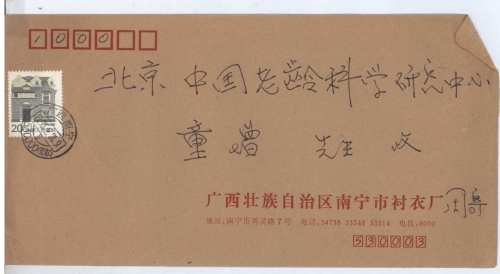 10000
北京 中国老龄科学研究中心
20
童增 先生 收
广西壮族自治区南宁市衬衣厂
地址:南宁市亮岭路7号 电话:34738 33748 33814 电挂:6000
530003